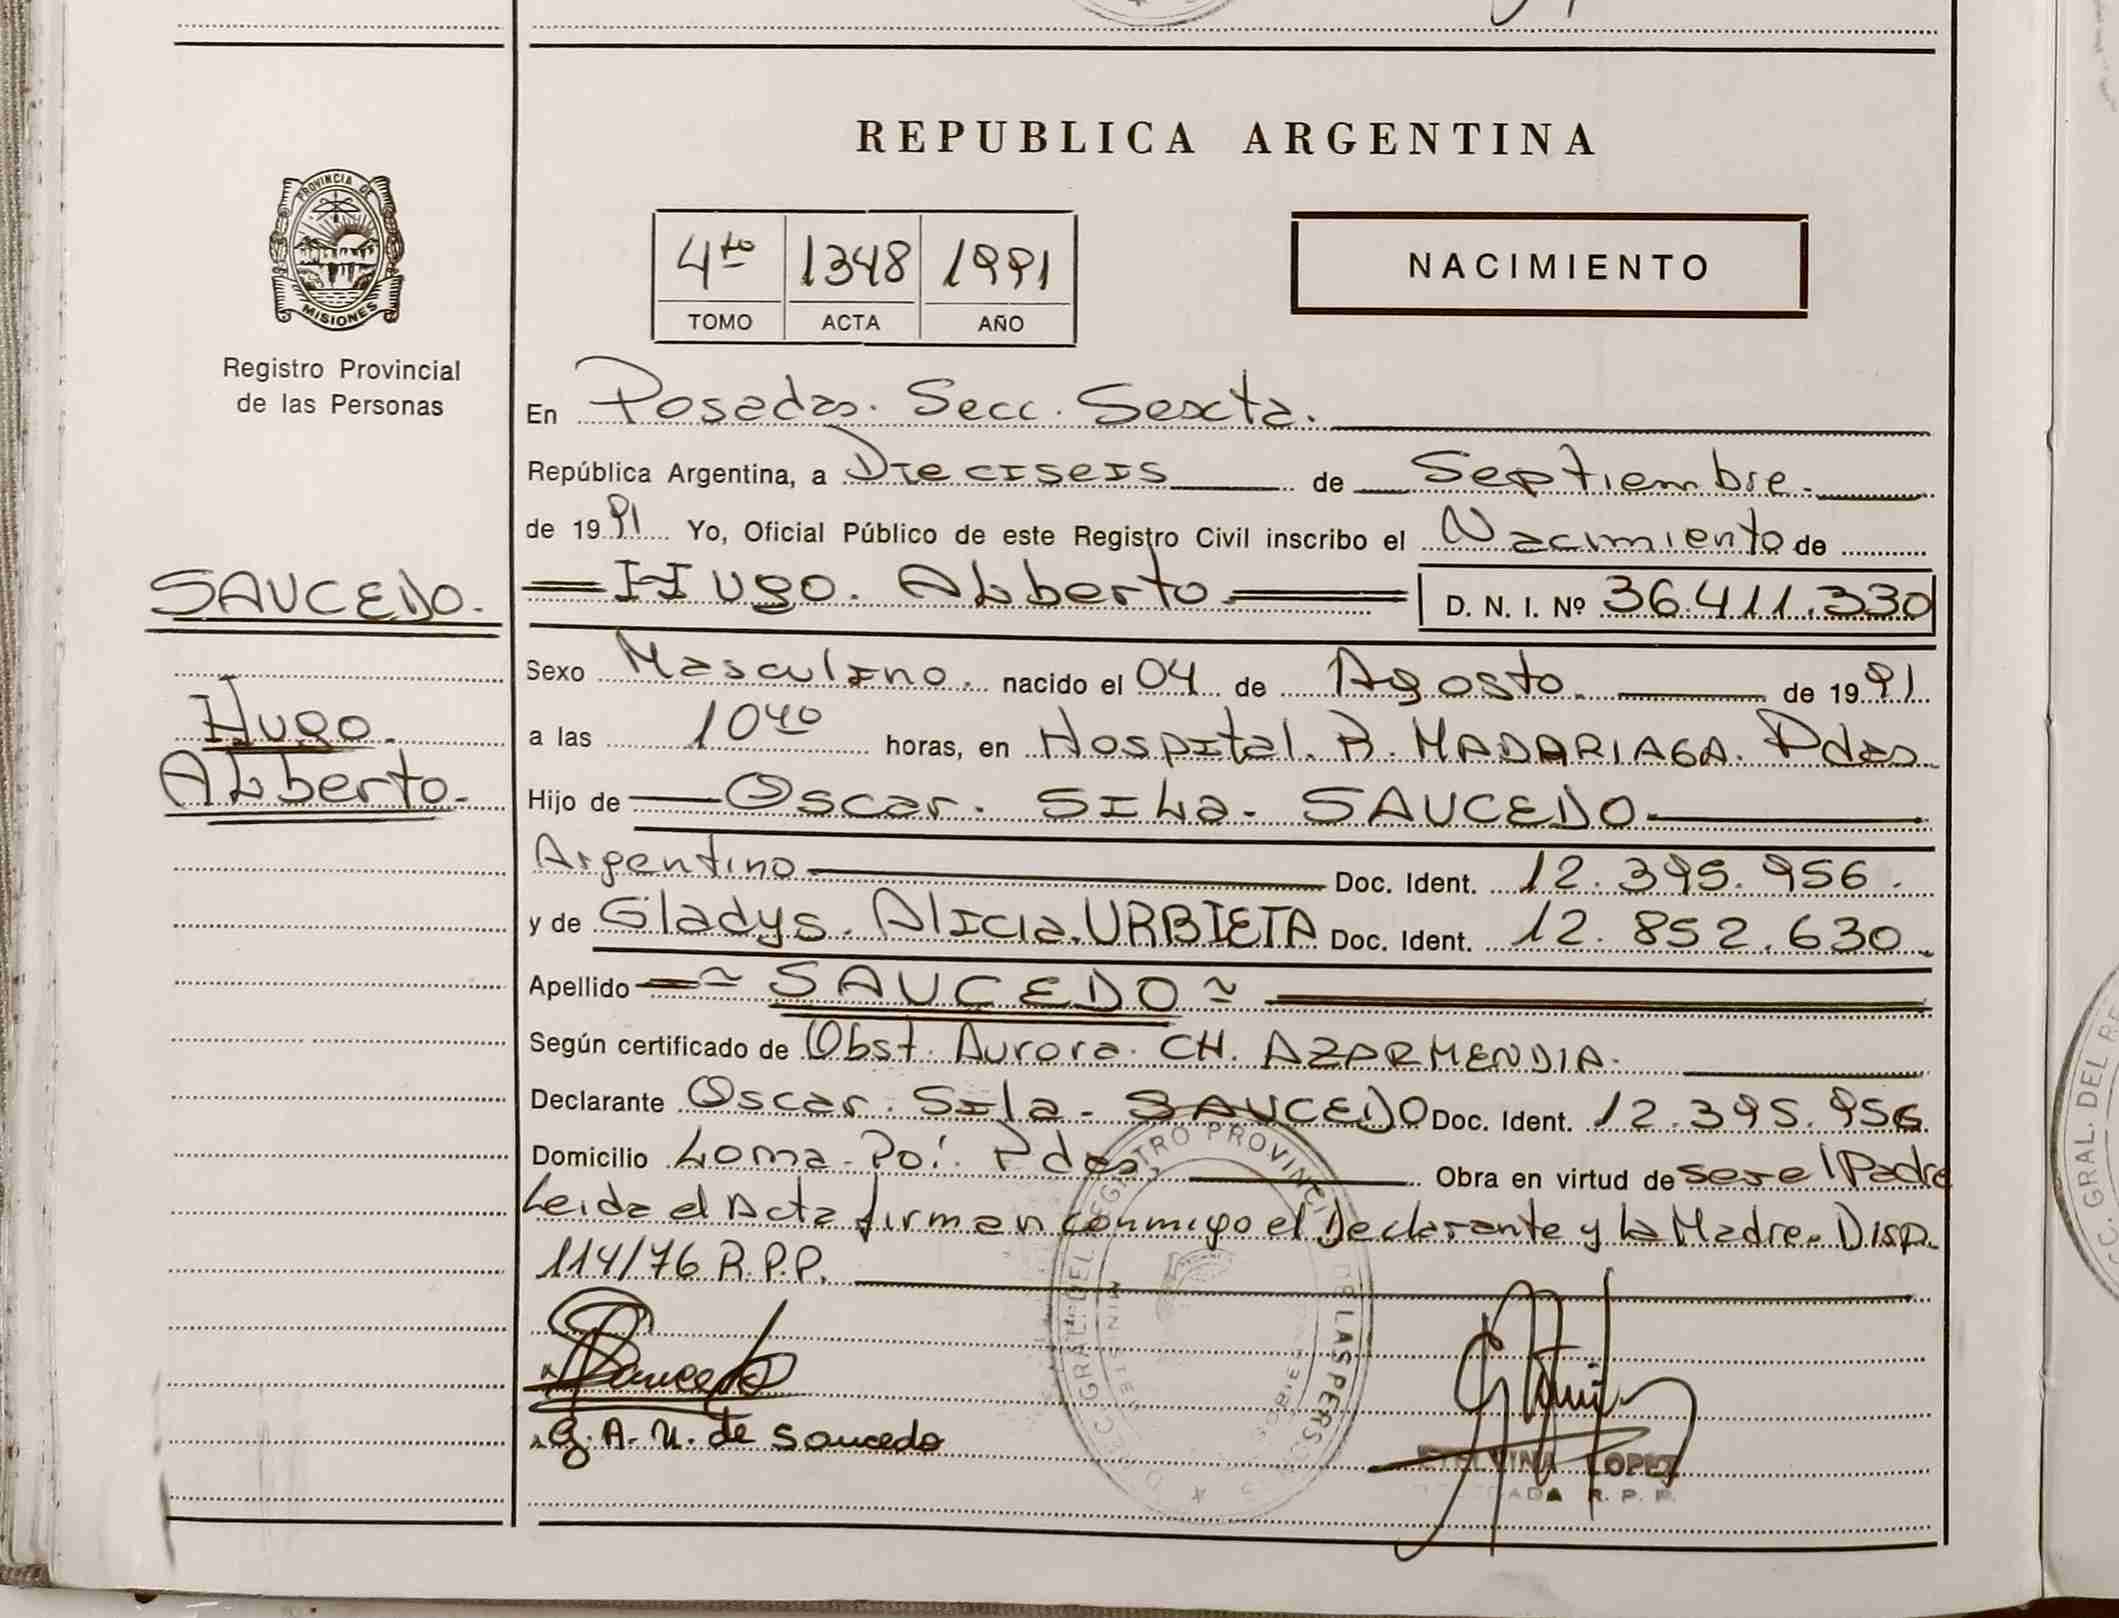 REPUBLICA ARGENTINA
PROVINCIA DE
MISIONES
Registro Provincial
de las Personas
4to 1348 1991
TOMO ACTA AÑO
NACIMIENTO
En Posadas. Secc. Sexta.
República Argentina, a Dieciseis de Septiembre.
de 1991 Yo, Oficial Público de este Registro Civil inscribo el Nacimiento de
SAUCEDO.
Hugo. Alberto. D. N. I. Nº 36.411.330
Sexo Masculino. nacido el 04 de Agosto. de 1991
Hugo.
Alberto.
a las 10 40 horas, en Hospital. R. MADARIAGA. Pdas.
Hijo de Oscar. Sila. SAUCEDO
Argentino Doc. Ident. 12.395.956.
y de Gladys. Alicia. URBIETA Doc. Ident. 12.852.630.
Apellido SAUCEDO
Según certificado de Obst. Aurora. CH. AZARMENDIA.
Declarante Oscar. Sila. SAUCEDO Doc. Ident. 12.395.956
Domicilio Loma. Poí. Pdas. Obra en virtud de ser el Padre
Leida el Acta firman conmigo el Declarante y la Madre. Disp.
114/76 R.P.P.
Saucedo
G. A. U. de Saucedo
LOPEZ
R. P. P.